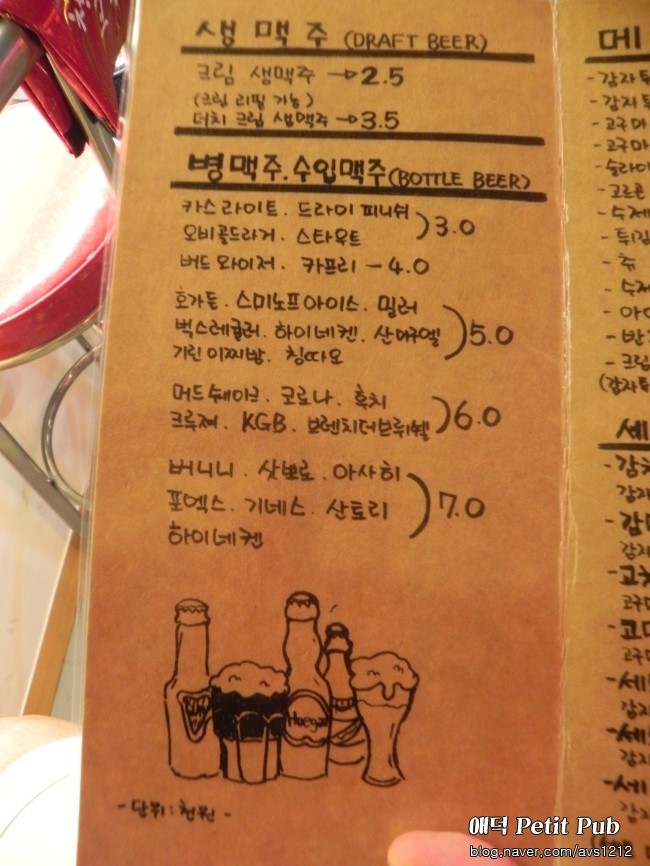 생 맥 주 (DRAFT BEER)
크림 생맥주 → 2.5
(크림 리필 가능)
더치 크림 생맥주 → 3.5
병맥주.수입맥주(BOTTLE BEER)
카스 라이트. 드라이 피니쉬
오비골드라거. 스타우트 ) 3.0
버드 와이저. 카프리 - 4.0
호가든. 스미노프아이스. 밀러
벅스레귤러. 하이네켄. 산미구엘 ) 5.0
기린 이찌방. 칭따오
머드쉐이크. 코로나. 흑치
크루져. KGB. ) 6.0
버니니. 삿뽀로. 아사히
포엑스. 기네스. 산토리 ) 7.0
하이네켄
Hoegaa
- 단위 : 천원 -
메
- 감자튀
- 감자
- 고구마
- 고구마
- 슬라이
- 고르곤
- 수제
- 튀김
- 수제
- 크림
(감자튀
세
- 감
감자
- 감
감자
- 고
고구
- 고
고구
- 세
감자
- 세
감자
- 세
감자
애덕 Petit Pub
blog.naver.com/avs1212